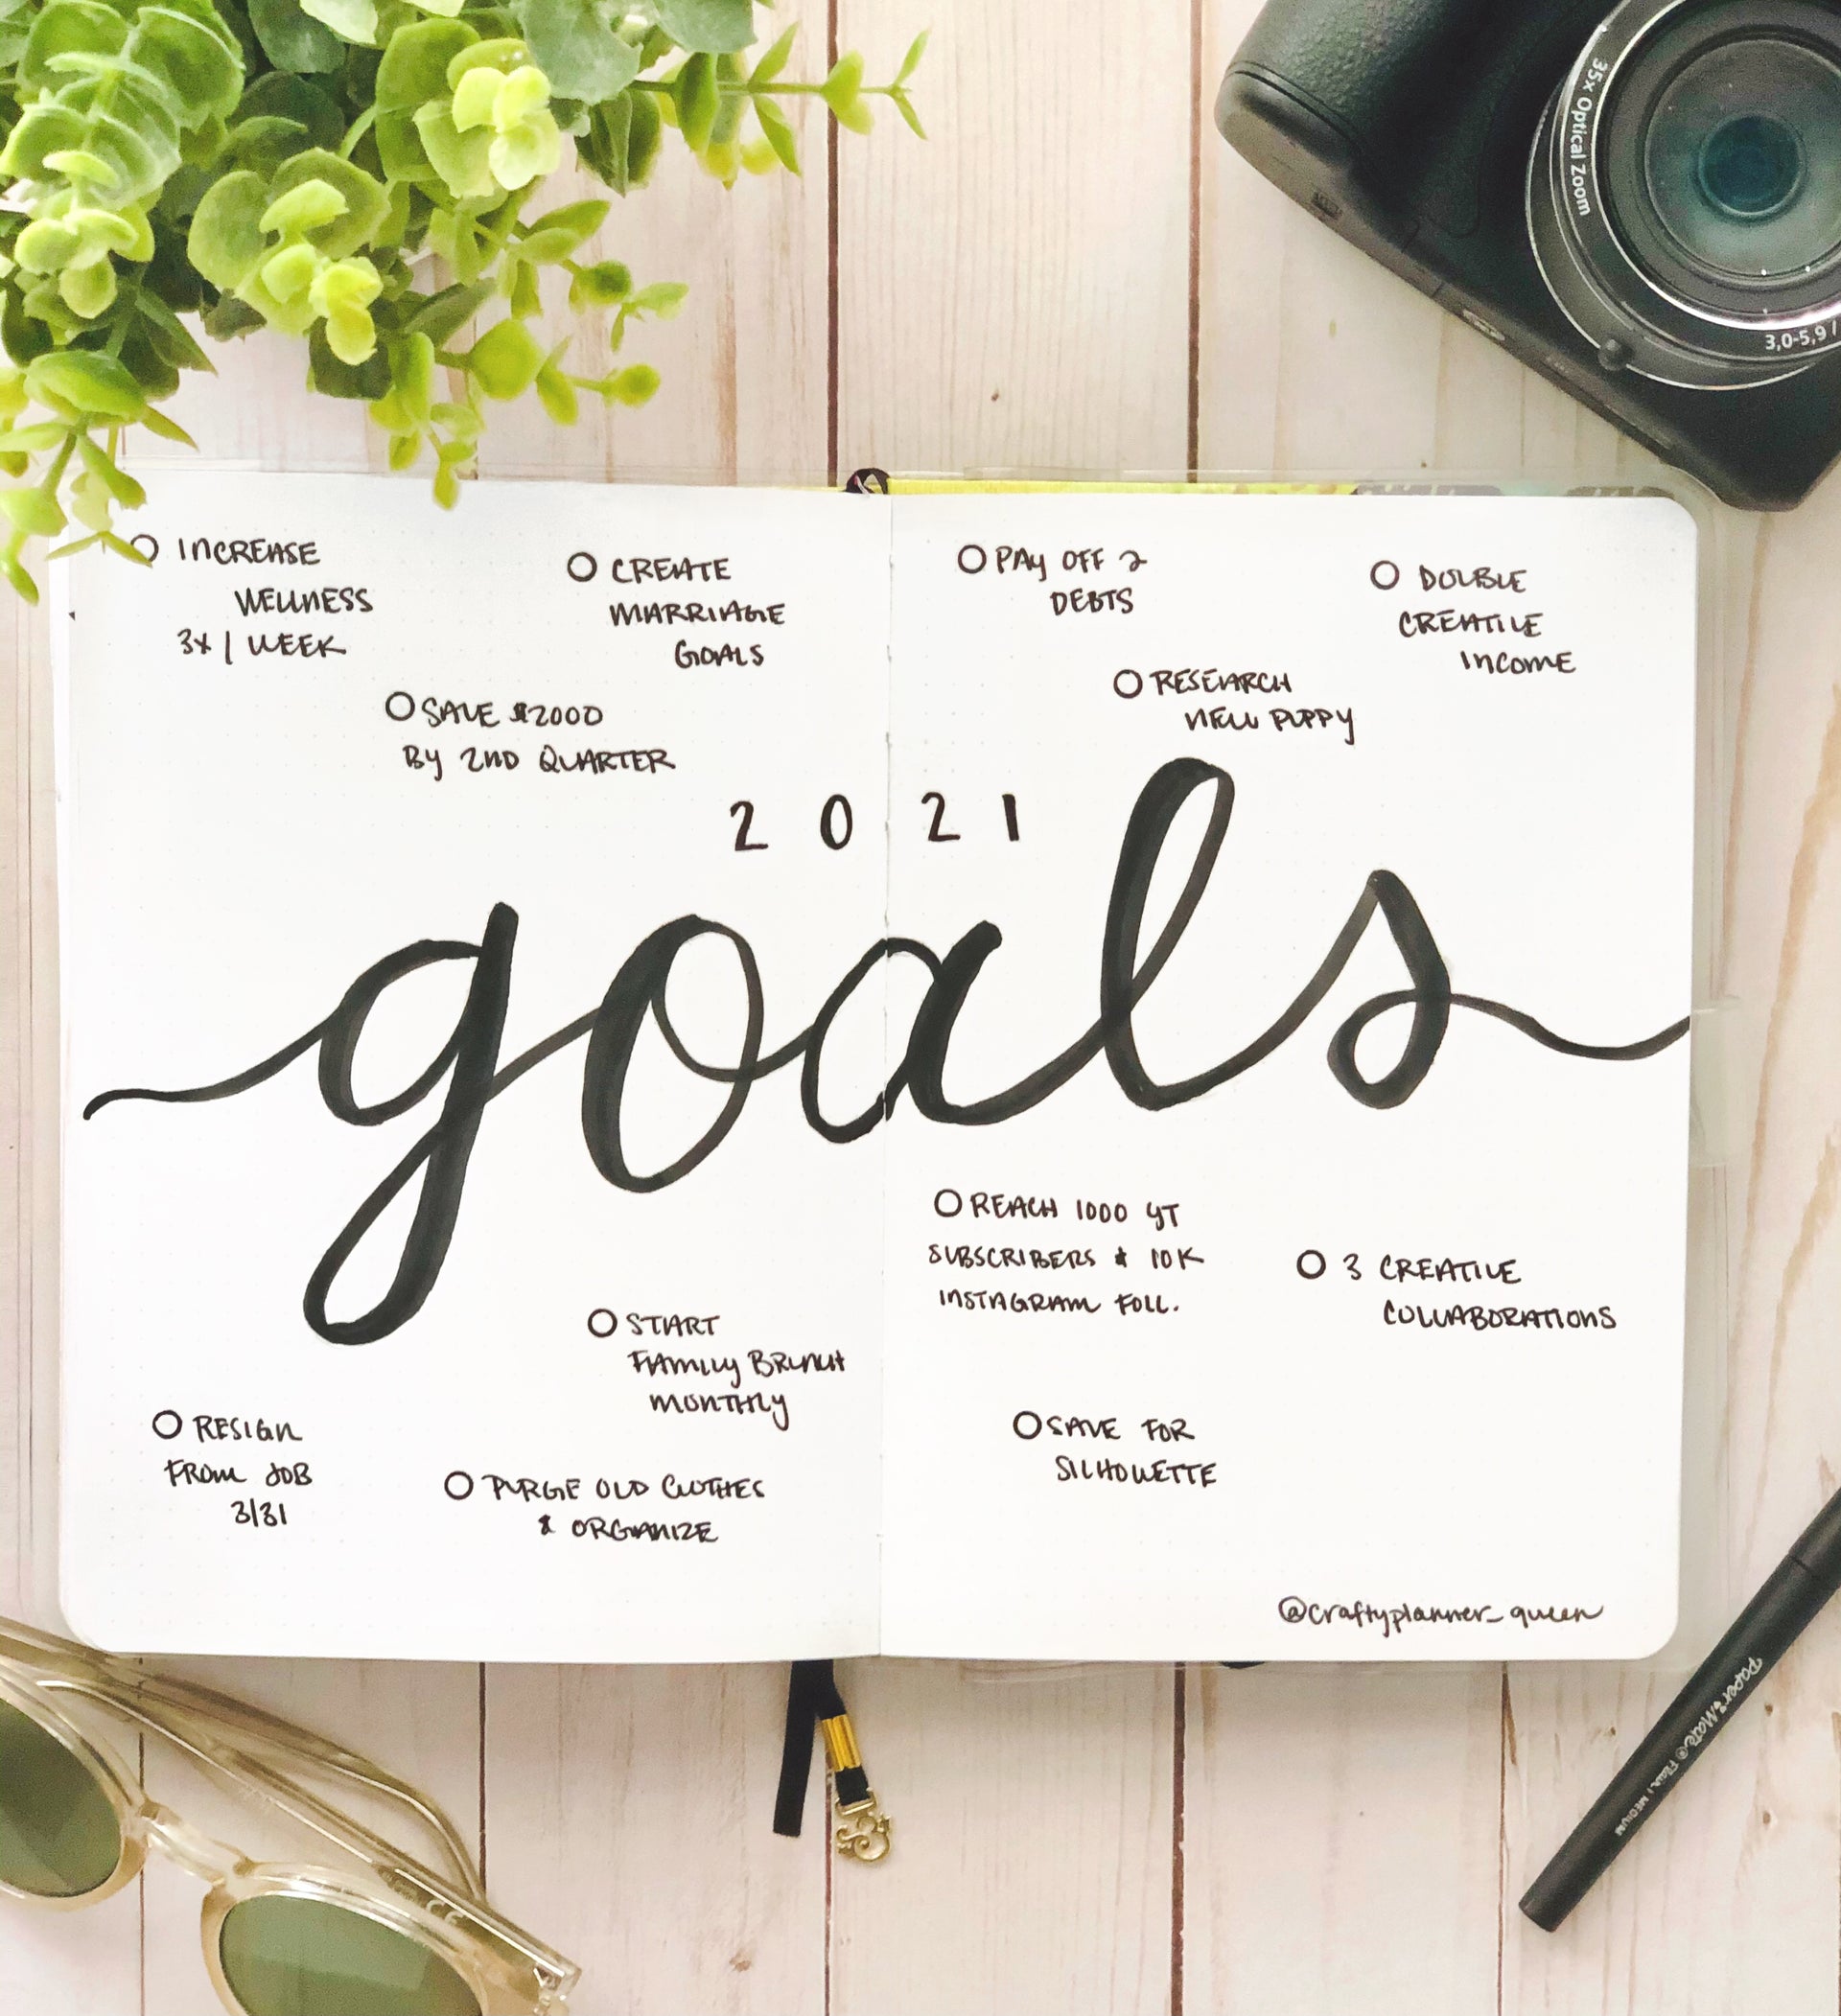 35x Optical Zoom
3,0-5,9 /
INCREASE
WELLNESS
3x / WEEK
CREATE
MARRIAGE
GOALS
SAVE $2000
BY 2ND QUARTER
PAY OFF 2
DEBTS
DOUBLE
CREATIVE
INCOME
RESEARCH
NEW PUPPY
2021
goals
REACH 1000 YT
SUBSCRIBERS & 10K
INSTAGRAM FOLL.
3 CREATIVE
COLLABORATIONS
START
FAMILY BRUNCH
MONTHLY
RESIGN
FROM JOB
3/31
PURGE OLD CLOTHES
& ORGANIZE
SAVE FOR
SILHOUETTE
@craftyplanner_queen
Paper:Mate® Flair | MEDIUM
CE